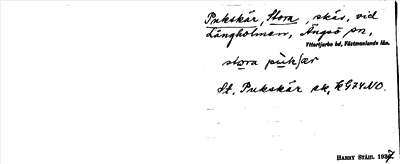 Pukskär, Stora, skär, vid
Långholmen, Ängsö sn,
Yttertjurbo hd, Västmanlands län.
stora puksær
St. Pukskär sk, KG74NO.
HARRY STÅHL 1937.